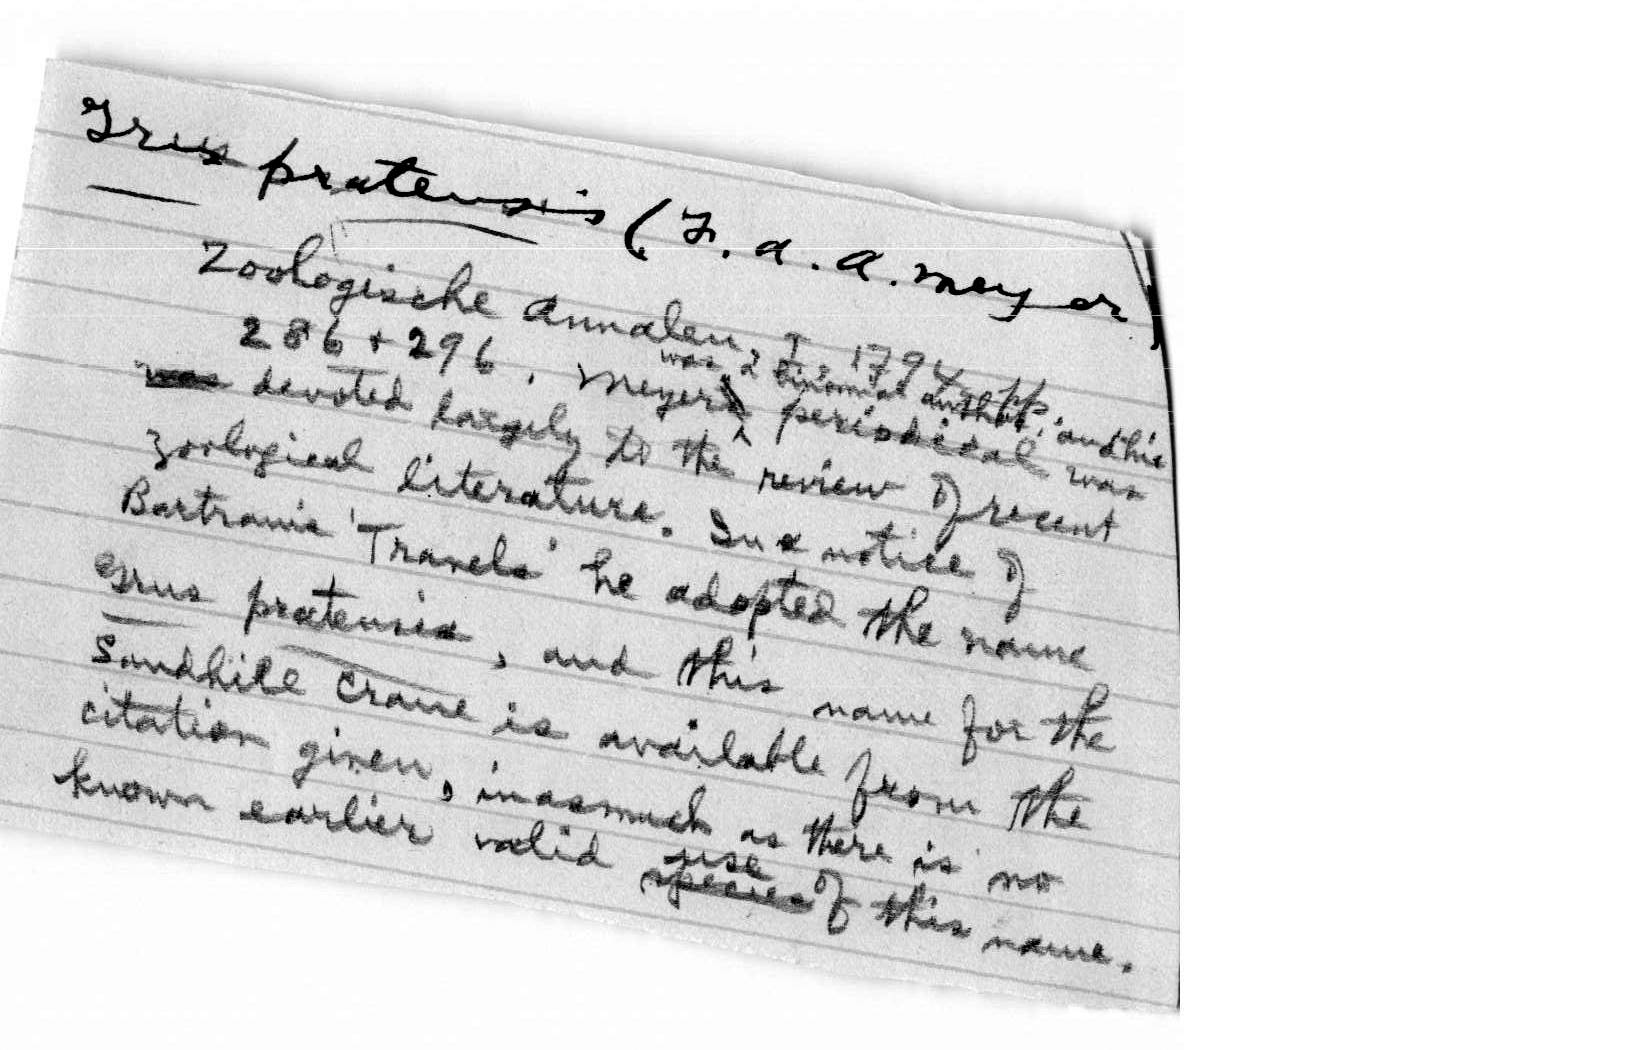 Grus pratensis (F. A. A. Meyer)
Zoologische Annalen, I, 1794, pp.
286 + 296. Meyer was a binomial author, and his periodical was
was devoted largely to the review of recent
zoological literature. In a notice of
Bartram's 'Travels' he adopted the name
Grus pratensis, and this name for the
Sandhill Crane is available from the
citation given, inasmuch as there is no
known earlier valid species use of this name.